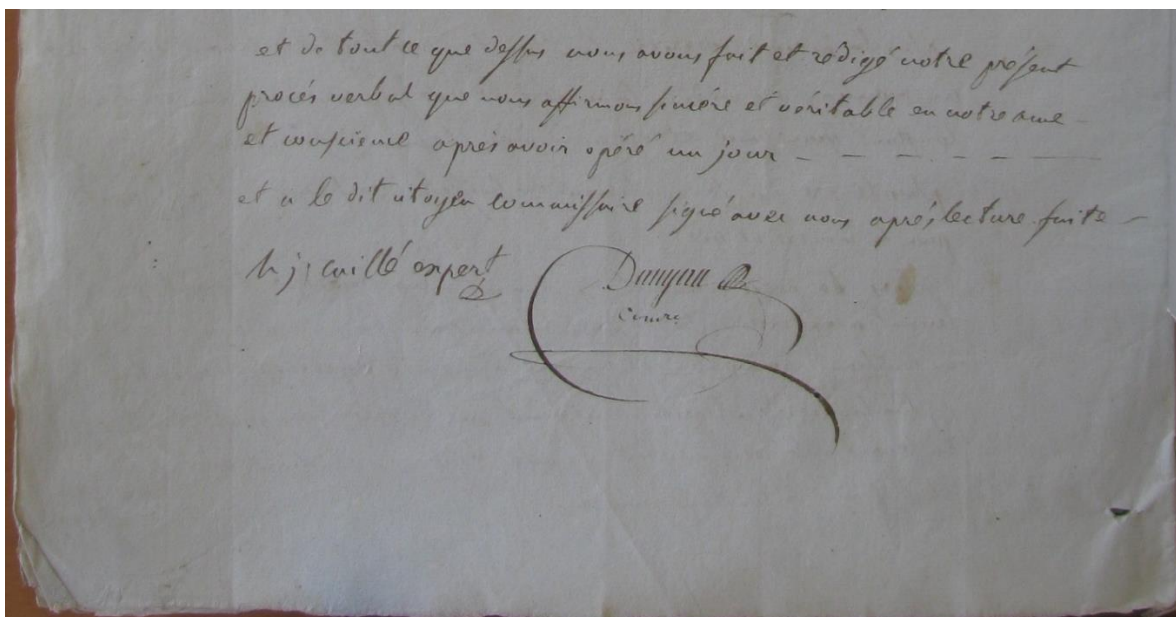 et de tout ce que dessus nous avons fait et rédigé notre présent
procés verbal que nous affirmons sincére et véritable en notre ame
et conscience aprés avoir opéré un jour — — — — — —
et a le dit citoyen commissaire signé avec nous aprés lecture faite —
cuillé expert
Danyau